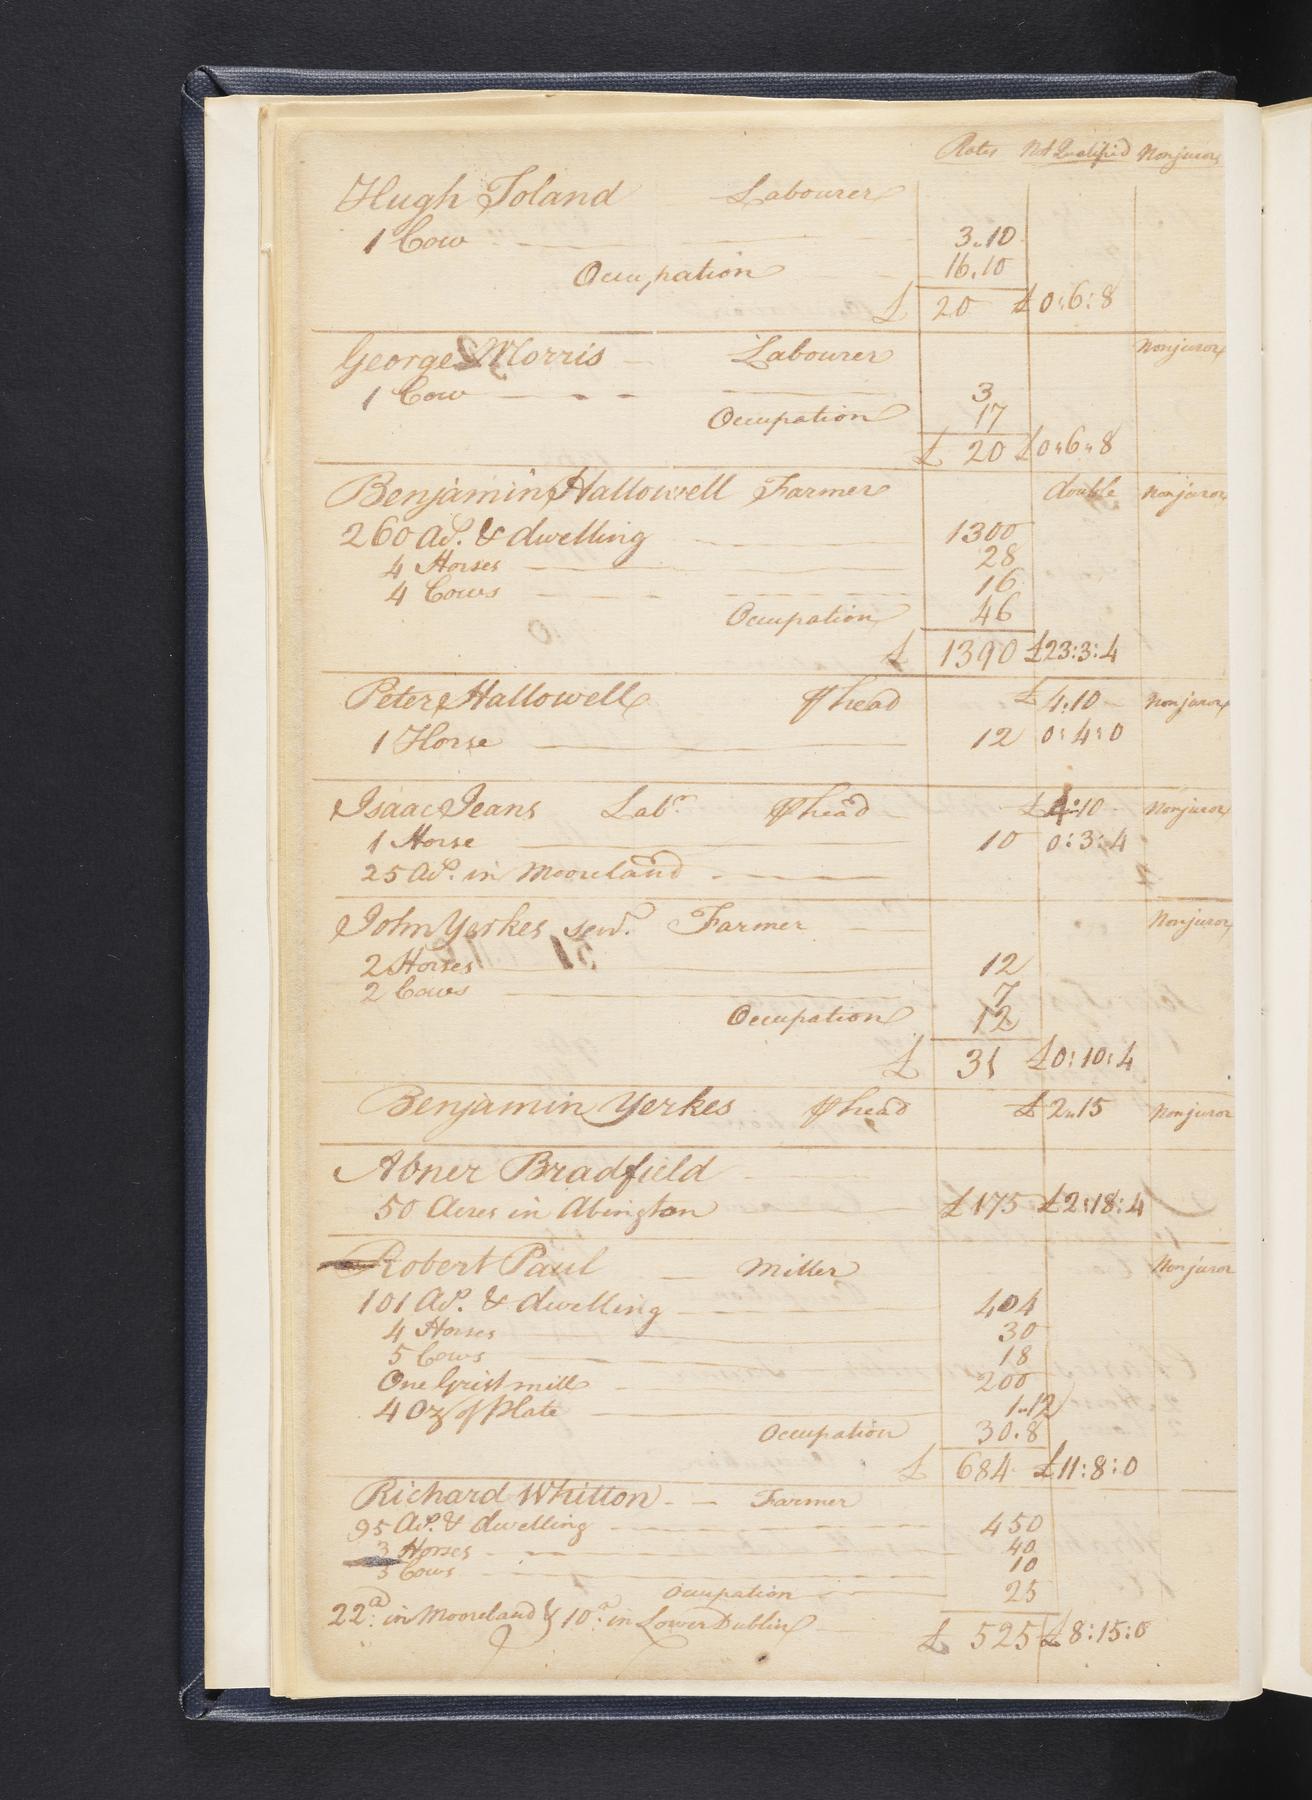 Rates Not Qualified Nonjurors
Hugh Toland Labourer
1 Cow 3.10
Occupation 16.10
£ 20 £0:6:8
George Morris Labourer Nonjuror
1 Cow 3
Occupation 17
£ 20 £0"6"8
Benjamin Hallowell Farmer double Nonjuror
260 As. & dwelling 1300
4 Horses 28
4 Cows 16
Occupation 46
£ 1390 £23:3:4
Peter Hallowell ⅌ head £4.10 Nonjuror
1 Horse 12 0:4:0
Isaac Jeans Labr. ⅌ head £4:10 Nonjuror
1 Horse 10 0:3:4
25 As. in Mooreland
John Yerkes senr. Farmer Nonjuror
2 Horses 12
2 Cows 7
Occupation 12
£ 31 £0:10:4
Benjamin Yerkes ⅌ head £2"15 Nonjuror
Abner Bradfield
50 Acres in Abington £175 £2:18:4
Robert Paul Miller Nonjuror
101 As. & dwelling 404
4 Horses 30
5 Cows 18
One Gristmill 200
4 Oz of Plate 1"12
Occupation 30.8
£ 684 £11:8:0
Richard Whitton Farmer
95 As. & dwelling 450
3 Horses 40
3 Cows 10
Occupation 25
22a. in Mooreland & 10a. in Lower Dublin
£ 525 £8:15:0